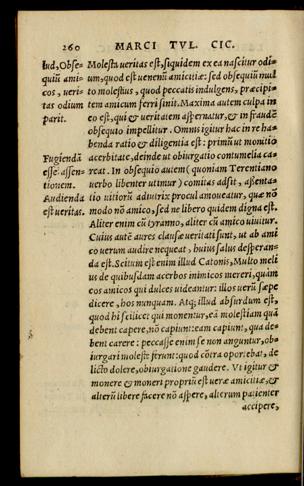 260 MARCI TVL. CIC.
lud, Obse=
quiũ ami=
cos, veri=
tas odium
parit.
Molesta ueritas est, siquidem ex ea nascitur odi=
um, quod est uenenũ amicitiæ: sed obsequiũ mul
to molestius, quod peccatis indulgens, præcipi=
tem amicum ferri sinit. Maxima autem culpa in
eo est, qui & ueritatem aspernatur, & in fraudẽ
obsequio impellitur. Omnis igitur hac in re ha=
benda ratio & diligentia est: primũ ut monitio
Fugiendã
esse assen=
tionem.
Audienda
est veritas.
acerbitate, deinde ut obiurgatio contumelia ca=
reat. In obsequio autem (quoniam Terentiano
uerbo libenter utimur) comitas adsit, assenta=
tio uitiorũ adiutrix procul amoueatur, quæ nõ
modo nõ amico, sed ne libero quidem digna est.
Aliter enim cũ tyranno, aliter cũ amico uiuitur.
Cuius autẽ aures clausæ ueritati sunt, ut ab ami
co uerum audire nequeat, huius salus desperan=
da est. Scitum est enim illud Catonis, Multo meli
us de quibusdam acerbos inimicos mereri, quàm
eos amicos qui dulces uideantur: illos uerũ sæpe
dicere, hos nunquam. Atq; illud absurdum est,
quod hi scilicet qui monentur, eã molestiam quã
debent capere, nõ capiunt: eam capiunt, qua de=
bent carere: peccasse enim se non anguntur, ob=
iurgari molestè ferunt: quod cõtra oportebat, de
licto dolere, obiurgatione gaudere. Vt igitur &
monere & moneri propriũ est ueræ amicitiæ, &
alterũ libere facere nõ aspere, alterum patienter
accipere,